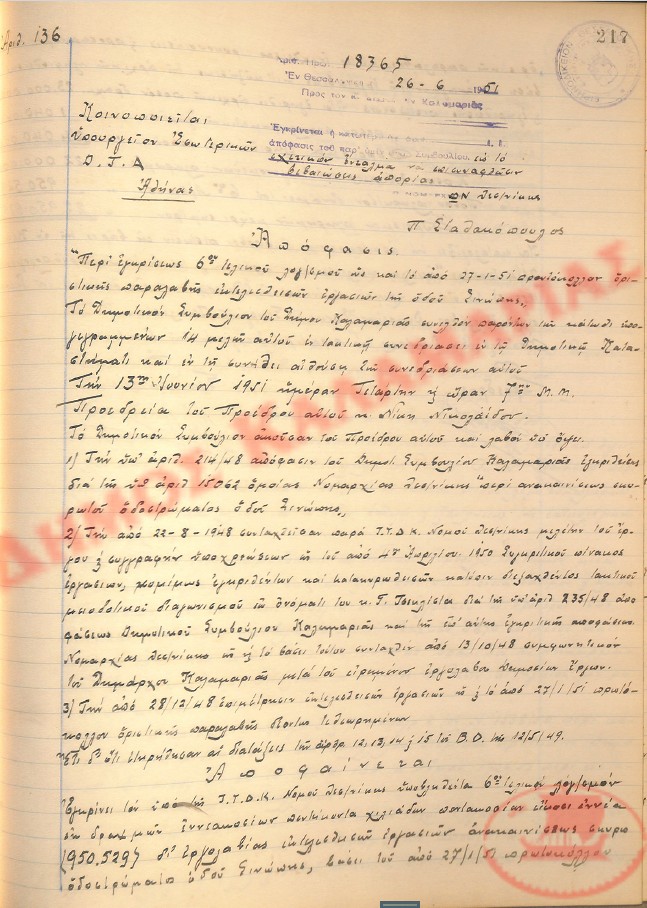 Αριθ. 136
217
Αριθ. Πρωτ. 18365
Ἐν Θεσσαλονίκῃ 26-6 1951
Πρὸς τὸν κ. Καλαμαριᾶς
Κοινοποιεῖται
Ἐγκρίνεται ἡ κατωτέρω
Ὑπουργεῖον Ἐσωτερικῶν
ἀπόφασις τοῦ παρ' Συμβουλίου εἰς τὸ
Ο.Τ.Α
σχετικὸν ἔνταλμα νὰ ἐπισυναφθῶσιν
βεβαιώσεις ἀπορίας
Ἀθήνας
Ὁ Ν Θεσ/νίκης
Π Σταθακόπουλος
Ἀπόφασις.
"Περὶ ἐγκρίσεως 6ου τελικοῦ λογ/σμοῦ ὡς καὶ τὸ ἀπὸ 27-1-51 πρωτόκολλον ὁρι-
στικῆς παραλαβῆς ἐκτελεσθεισῶν ἐργασιῶν τῆς ὁδοῦ Σινώπης,,
Τὸ Δημοτικὸν Συμβούλιον τοῦ Δήμου Καλαμαριᾶς συνελθὸν παρόντων τῶν κάτωθι ὑπο-
γεγραμμένων 14 μελῶν αὐτοῦ ἐν τακτικῇ συνεδριάσει ἐν τῷ Δημοτικῷ Κατα-
στήματι καὶ ἐν τῇ συνήθει αἰθούσῃ τῶν συνεδριάσεων αὐτοῦ
Τὴν 13ην Ἰουνίου 1951 ἡμέραν Τετάρτην ἢ ὥραν 7ην Μ.Μ.
Προεδρεία τοῦ Προέδρου αὐτοῦ κ. Νίκη Νικολαΐδου.
Τὸ Δημοτικὸν Συμβούλιον ἀκοῦσαν τοῦ Προέδρου αὐτοῦ καὶ λαβὸν ὑπ' ὄψει.
1) Τὴν ὑπ' ἀριθ. 214/48 ἀπόφασιν τοῦ Δημοτ. Συμβουλίου Καλαμαριᾶς ἐγκριθείσης
διὰ τῆς ὑπ' ἀριθ 15062 ὁμοίας Νομαρχίας Θεσ/νίκης "περὶ ἀνακαινίσεως σκυ-
ρωτοῦ ὁδοστρώματος ὁδοῦ Σινώπης,,
2) Τὴν ἀπὸ 22-8-1948 συνταχθεῖσαν παρὰ Τ.Υ.Δ.Κ. Νομοῦ Θεσ/νίκης μελέτην τοῦ ἔρ-
γου ἢ συγγραφὴν ὑποχρεώσεων ὡς τοῦ ἀπὸ 4ης Ἀπριλίου 1950 συγκριτικοῦ πίνακος
ἐργασιῶν, νομίμως ἐγκριθέντων καὶ κατακυρωθεισῶν κατόπιν διεξαχθέντος τακτικοῦ
μειοδοτικοῦ διαγωνισμοῦ ἐπ' ὀνόματι τοῦ κ. Γ. διὰ τῆς ὑπ' ἀριθ 235/48 ἀπο-
φάσεως Δημοτικοῦ Συμβουλίου Καλαμαριᾶς καὶ τῆς ἐπ' αὐτῆς ἐγκριτικῆς ἀποφάσεως
Νομαρχίας Θεσ/νίκης ὡς ἢ τὸ βάσει τούτου συνταχθὲν ἀπὸ 13/10/48 συμφωνητικὸν
τοῦ Δημάρχου Καλαμαριᾶς μετὰ τοῦ εἰρημένου ἐργολάβου Δημοσίων Ἔργων.
3) Τὴν ἀπὸ 28/12/48 ἐπιμέτρησιν ἐκτελεσθεισῶν ἐργασιῶν ὡς ἢ τὸ ἀπὸ 27/1/51 πρωτό-
κολλον ὁριστικῆς παραλαβῆς δεόντως τεθεωρημένον
Ἔτι δ' ὅτι ἐτηρήθησαν αἱ διατάξεις τῶν ἄρθρ. 12, 13, 14 ἢ 15 τοῦ Β.Δ. τῆς 12/5/49.
Ἀποφαίνεται
Ἐγκρίνει τὸν ὑπὸ τῆς Τ.Υ.Δ.Κ. Νομοῦ Θεσ/νίκης ὑποβληθέντα 6ον τελικὸν λογ/σμὸν
ἐκ δραχμῶν ἐννεακοσίων πεντήκοντα χιλιάδων πεντακοσίων εἴκοσι ἐννέα
(950.529) δι' ἐργολαβίας ἐκτελεσθεισῶν ἐργασιῶν ἀνακαινίσεως σκυρο
ὁδοστρώματος ὁδοῦ Σινώπης, βάσει τοῦ ἀπὸ 27/1/51 πρωτοκόλλου
ΔΗΜΟΣ ΚΑΛΑΜΑΡΙΑΣ